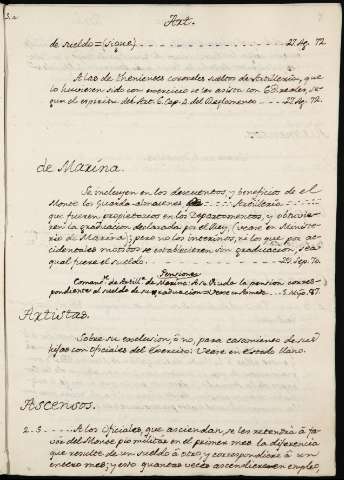 Art.
de sueldo = (sigue) 27. Ag. 72
A los de thenientes coroneles sueltos de Artilleria, que
lo huviesen sido con exercicio se les asista con 68 reales, se-
gun el espiritu del Art. 6. Cap. 2. del Reglamento 27. Ag. 72.
de Marina.
Se incluyen en los descuentos, y beneficio de el
Monte los Guarda-almacenes Artilleria
que fueren propietarios en los Departamentos, y obtuvie-
ren la graduacion declarada por el Rey. (vease en Ministe-
rio de Marina); pero no los interinos, ni los que por ac-
cidentales motibos se establecieren sin graduacion, sea
qual fuere el sueldo. 29. Sep. 70.
Pensiones
Comand.te de Artill.a de Marina: A su Viuda la pension corres-
pondiente al sueldo de su graduacion = Vease en 87.
Artistas
Sobre su exclusion, ó no, para casamiento de sus
hijas con oficiales del Exercito: Vease en Estado llano.
Ascensos.
2. 3. A los Oficiales, que asciendan, se les retendrá á fa-
vor del Monte pio militar en el primer mes la diferencia
que resulte de un sueldo á otro, y correspondiere á un
entero mes; y esto quantas veces ascendieren en empleo,